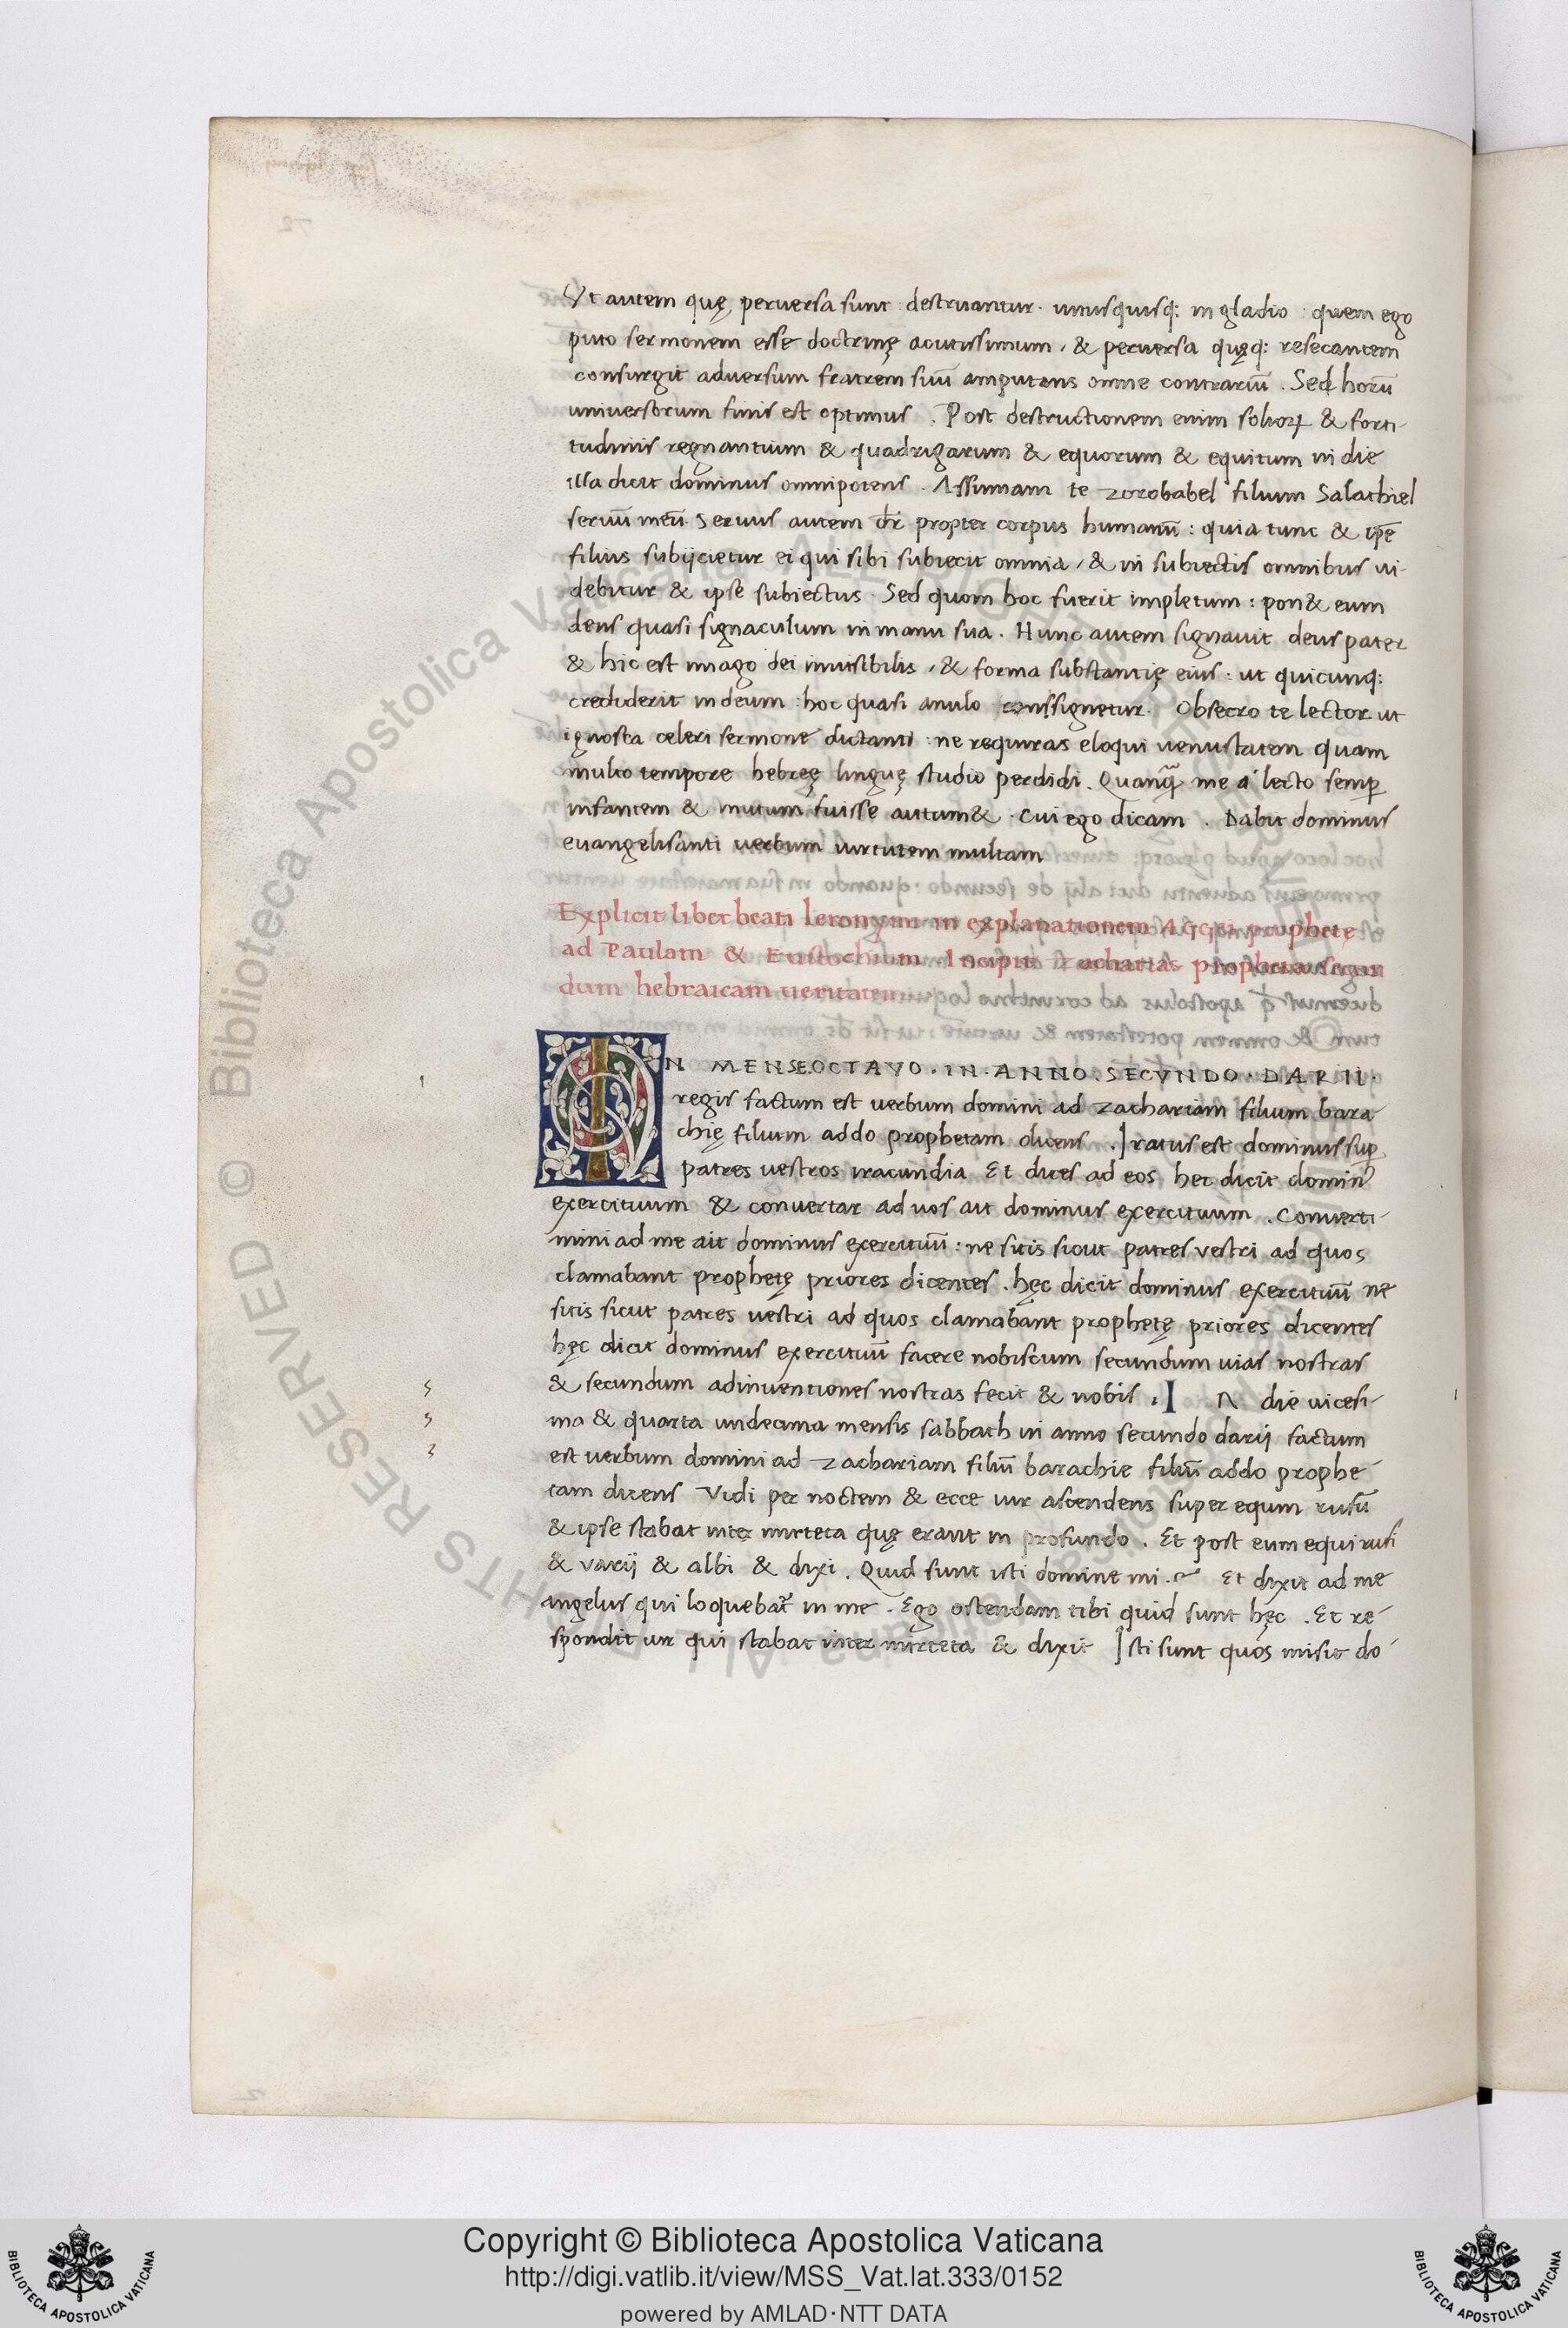 Vt autem quę peruersa sunt destruantur. unusquisq: in gladio : quem ego
puto sermonem esse doctrinę acutissimum, & peruersa quęq: resecantem
consurgit aduersum fratrem suū amputans omne contrariū . Sed horū
uniuersorum finis est optimus . Post destructionem enim solioꝝ & forti-
tudinis regnantium & quadrigarum & equorum & equitum in die
illa dicit dominus omnipotens . Assumam te zorobabel filium Salathiel
seruū meū. Seruus autem dr̄ propter corpus humanū : quia tunc & ip̄e
filius subijcietur ei qui sibi subiecit omnia, & in subiectis omnibus ui-
debitur & ipse subiectus. Sed quom hoc fuerit impletum : pon& eum
deus quasi signaculum in manu sua. Hunc autem signauit deus pater
& hic est imago dei inuisibilis, & forma substantię eius : ut quicunq:
crediderit in deum : hoc quasi anulo conssignetur. Obsecro te lector ut
ignosca celeri sermone dictanti : ne requiras eloqui uenustatem quam
multo tempore hebreę linguę studio perdidi. Quanq̄ me a lecto semꝑ
infantem & mutum fuisse autum& . cui ego dicam . Dabit dominus
euangelisanti uerbum uirtutem multam
Explicit liber beati Ieronymi in explanationem Aggei prophetę
ad Paulam & Eustochium. Incipit Zacharias propheta secun
dum hebraicam ueritatem
IN MENSE OCTAVO. IN. ANNO. SECVNDO. DARII.
regis factum est uerbum domini ad zachariam filium bara-
chię filium addo prophetam dicens . Iratus est dominus suꝑ
patres uestros iracundia Et dices ad eos hec dicit dominꝰ
exercituum & conuertar ad uos ait dominus exercituum . Conuerti-
mini ad me ait dominus exercituū : ne sitis sicut patres vestri ad quos
clamabant prophetę priores dicentes . hęc dicit dominus exercituū ne
sitis sicut patres vestri ad quos clamabant prophetę priores dicentes
hęc dicit dominus exercituū facere nobiscum secundum uias nostras
& secundum adinuentiones nostras fecit & nobis . IN die uicesi-
ma & quarta undecima mensis sabbath in anno secundo darij factum
est uerbum domini ad zachariam filiū barachie filiū addo prophe-
tam dicens Vidi per noctem & ecce uir ascendens super equm rufū
& ipse stabat inter mirteta quę erant in profundo . Et post eum equi rufi
& varij & albi & dixi . Quid sunt isti domine mi . Et dixit ad me
angelus qui loquebat̄ in me . Ego ostendam tibi quid sunt hęc . Et re-
spondit uir qui stabat inter mirteta & dixit Isti sunt quos misit do-
© Biblioteca Apostolica Vaticana ALL RIGHTS RESERVED
Copyright © Biblioteca Apostolica Vaticana
http://digi.vatlib.it/view/MSS_Vat.lat.333/0152
powered by AMLAD·NTT DATA
BIBLIOTECA APOSTOLICA VATICANA
BIBLIOTECA APOSTOLICA VATICANA